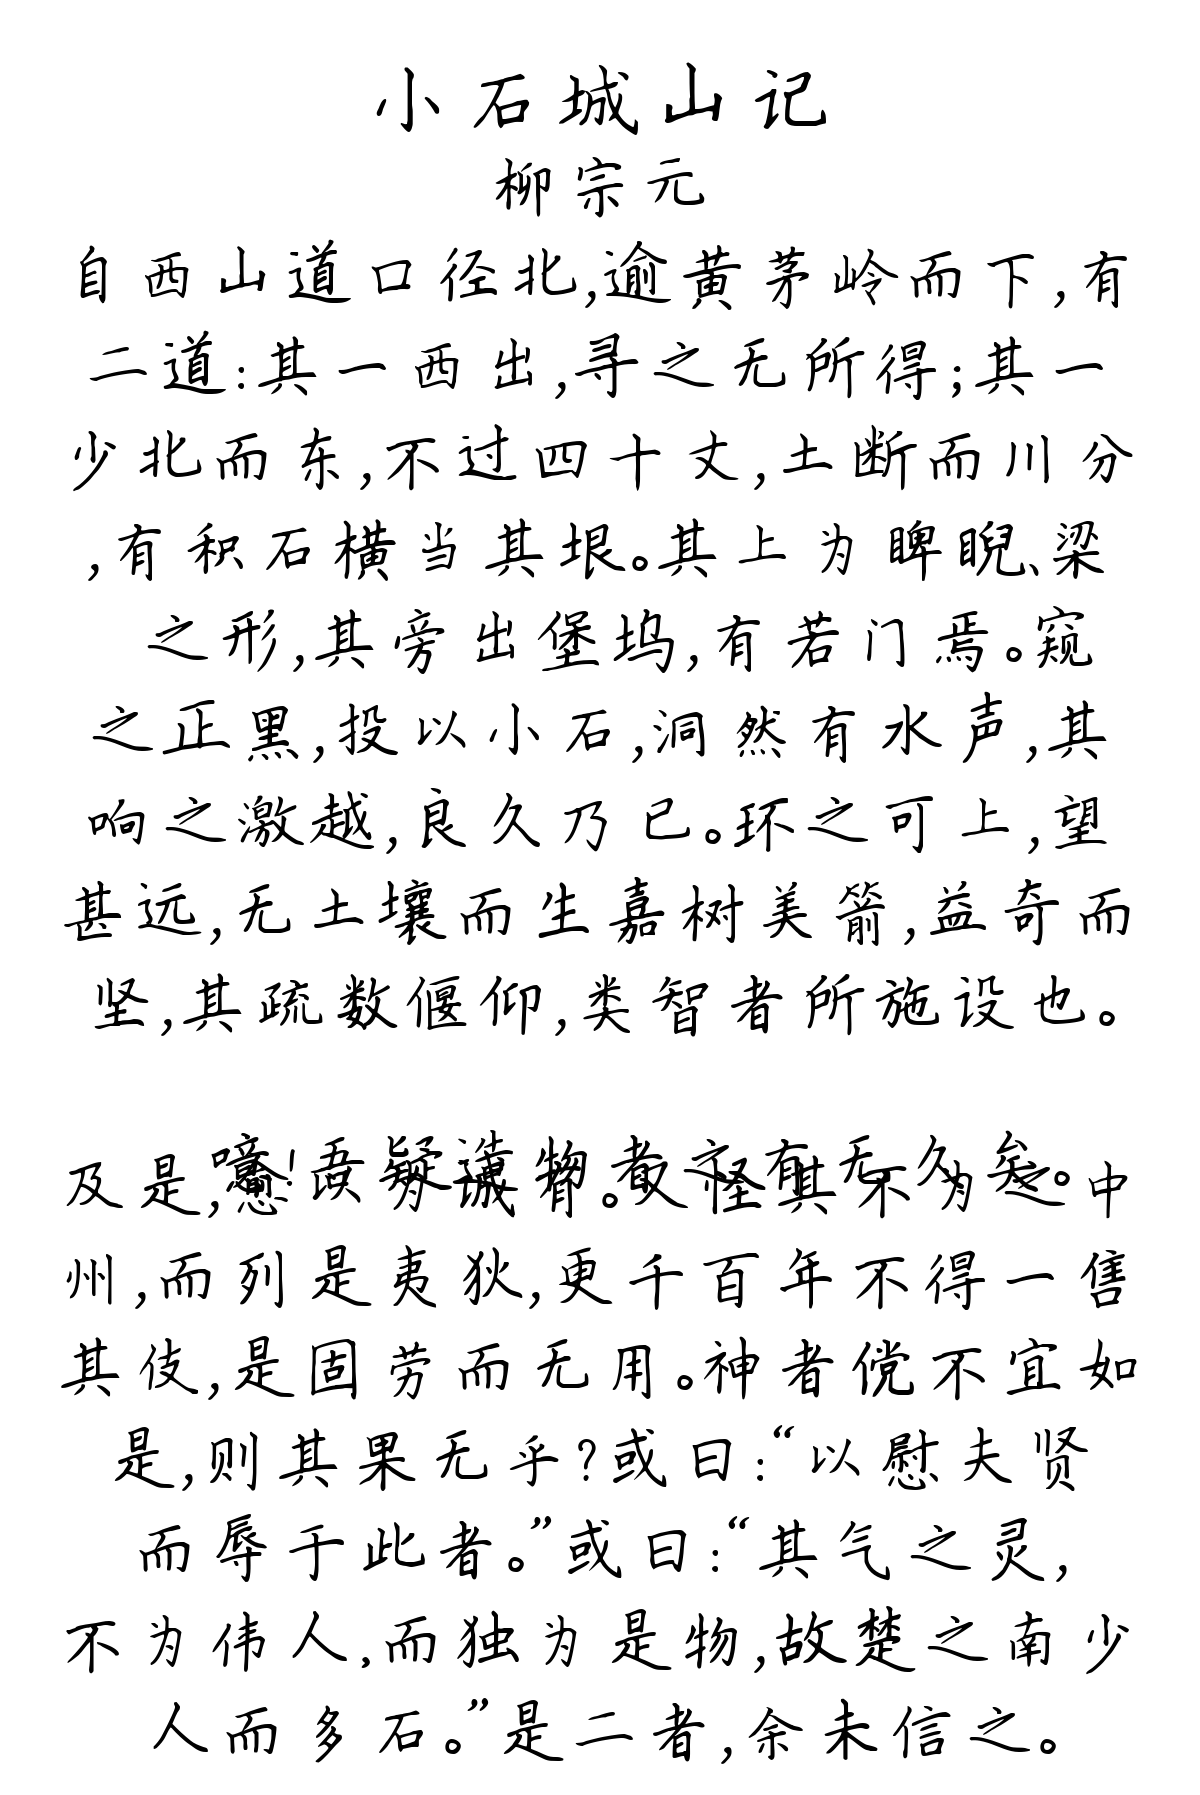 小石城山记
柳宗元
自西山道口径北,逾黄茅岭而下,有
二道:其一西出,寻之无所得;其一
少北而东,不过四十丈,土断而川分
,有积石横当其垠。其上为睥睨、梁
之形,其旁出堡坞,有若门焉。窥
之正黑,投以小石,洞然有水声,其
响之激越,良久乃已。环之可上,望
甚远,无土壤而生嘉树美箭,益奇而
坚,其疏数偃仰,类智者所施设也。
噫!吾疑造物者之有无久矣。
及是,愈以为诚有。又怪其不为之中
州,而列是夷狄,更千百年不得一售
其伎,是固劳而无用。神者傥不宜如
是,则其果无乎?或曰:“以慰夫贤
而辱于此者。”或曰:“其气之灵,
不为伟人,而独为是物,故楚之南少
人而多石。”是二者,余未信之。